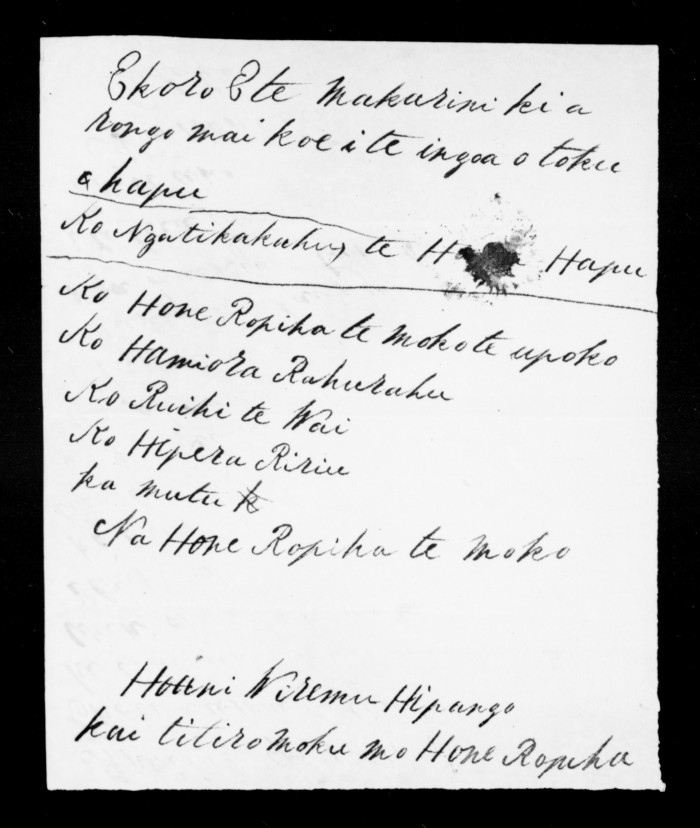 Ekoro Ete Makarini ki a
rongo mai koe i te ingoa o toku
hapu
Ko Ngatikakahu te Hapu
Ko Hone Ropiha te moko te upoko
Ko Hamiora Rahurahu
Ko Ruihi te Wai
Ko Hipera Ririu
ka mutu
Na Hone Ropiha te moko
Hoani Wiremu Hipango
kai titiro moku mo Hone Ropiha